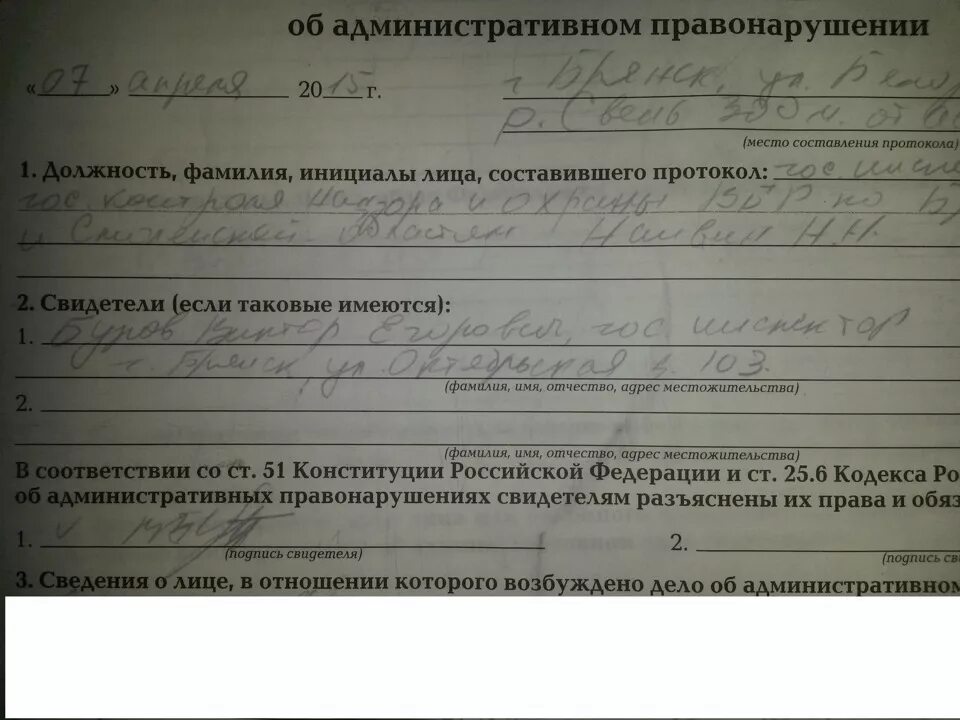 об административном правонарушении
«07» апреля 2015 г.
г. Брянск, ул.
р. Свень 300 м. от
(место составления протокола)
1. Должность, фамилия, инициалы лица, составившего протокол: гос.
гос. контроля надзора и охраны ВБР по
и Смоленской областям Н.Н.
2. Свидетели (если таковые имеются):
1. Буров Виктор Егорович, гос. инспектор
г. Брянск, ул. Октябрьская 103.
(фамилия, имя, отчество, адрес местожительства)
2.
(фамилия, имя, отчество, адрес местожительства)
В соответствии со ст. 51 Конституции Российской Федерации и ст. 25.6 Кодекса Ро
об административных правонарушениях свидетелям разъяснены их права и обяз
1. 2.
(подпись свидетеля) (подпись сви
3. Сведения о лице, в отношении которого возбуждено дело об административном